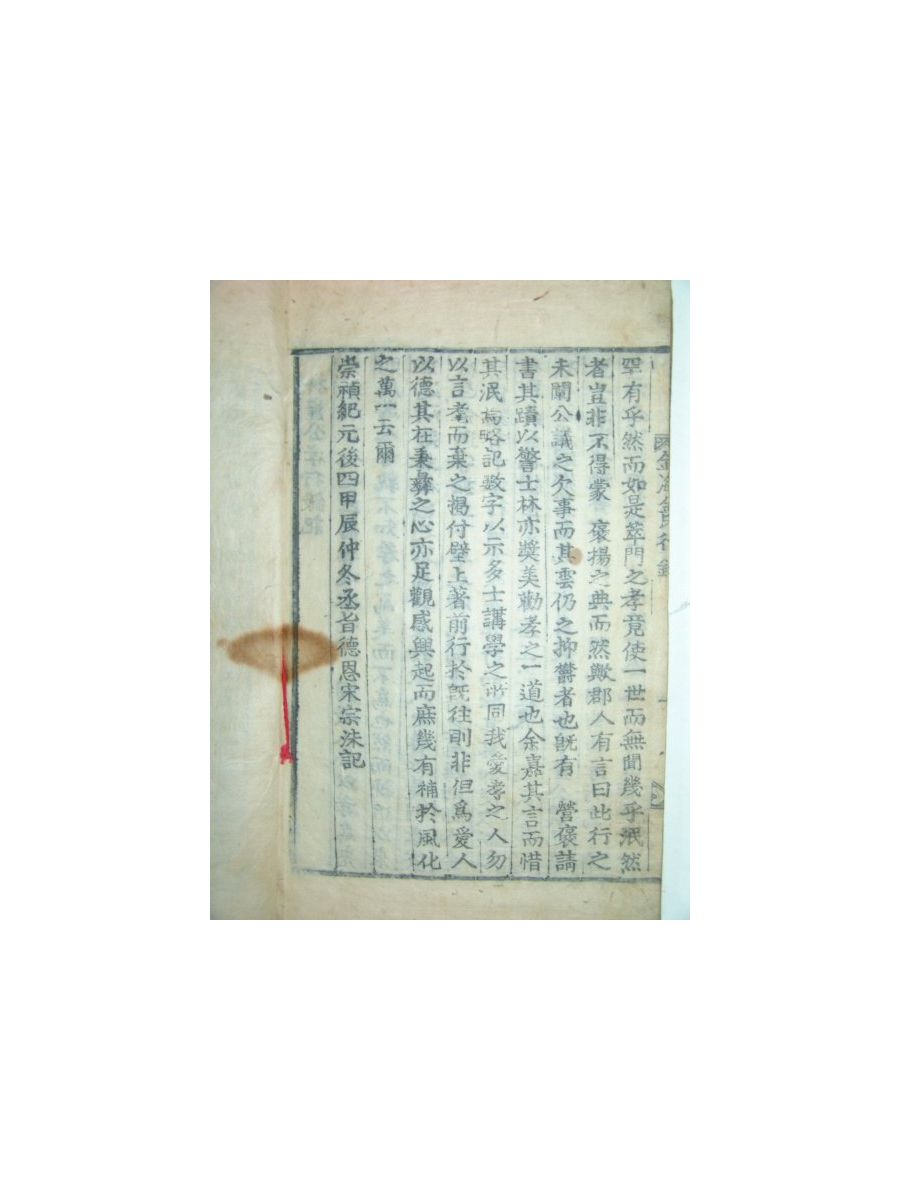 罕有乎然而如是萃門之孝竟使一世而無聞幾乎泯然
者豈非不得蒙 褒揚之典而然歟郡人有言曰此行之
未闡公議之欠事而其雲仍之抑欝者也旣有 營褒請
書其蹟以警士林亦奬美勸孝之一道也余嘉其言而惜
其泯焉略記數字以示多士講學之所同我愛孝之人勿
以言耄而棄之揭付壁上著前行於旣往則非但爲愛人
以德其在秉彝之心亦足觀感興起而庶幾有補於風化
之萬一云爾
崇禎紀元後四甲辰仲冬丞旨德恩宋宗洙記